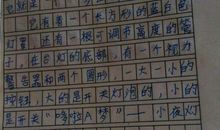 也就是一个
它有着一个长方形的蓝白色
灯罩，还有一根可调节高度的管
子，在台灯的底部，有一个视力
警告器和两个圆形，一大一小的
按钮，大的是开关灯泡的，小的
是开关“哆啦A梦”——小夜灯